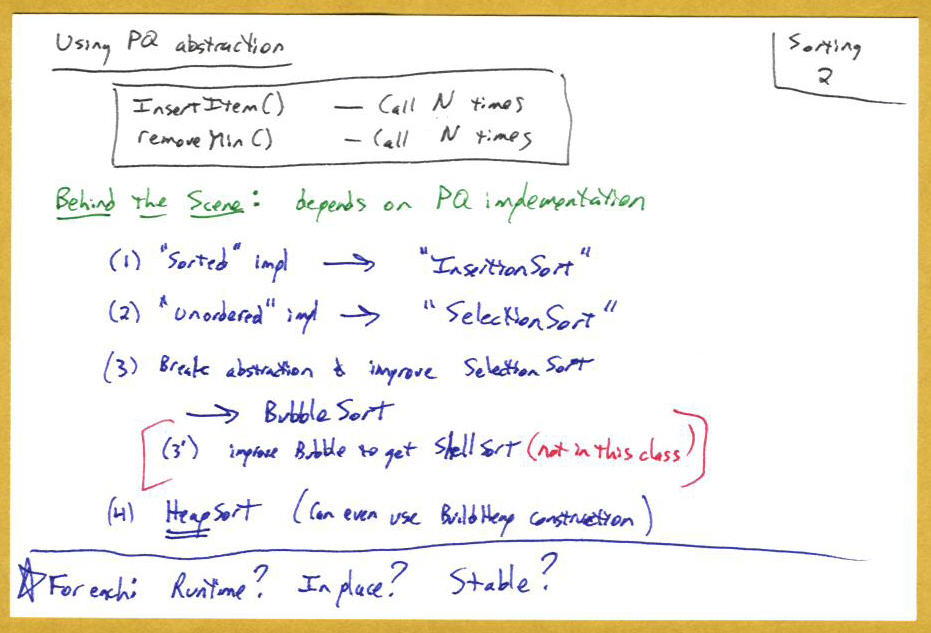 Using PQ abstraction
Sorting
2
InsertItem() — Call N times
removeMin() — Call N times
Behind the Scene: depends on PQ implementation
(1) "Sorted" impl → "InsertionSort"
(2) "unordered" impl → "SelectionSort"
(3) Break abstraction & improve Selection Sort
→ Bubble Sort
[(3') improve Bubble to get Shell Sort (not in this class)]
(4) HeapSort (Can even use BuildHeap construction)
☆ For each: Runtime? In place? Stable?